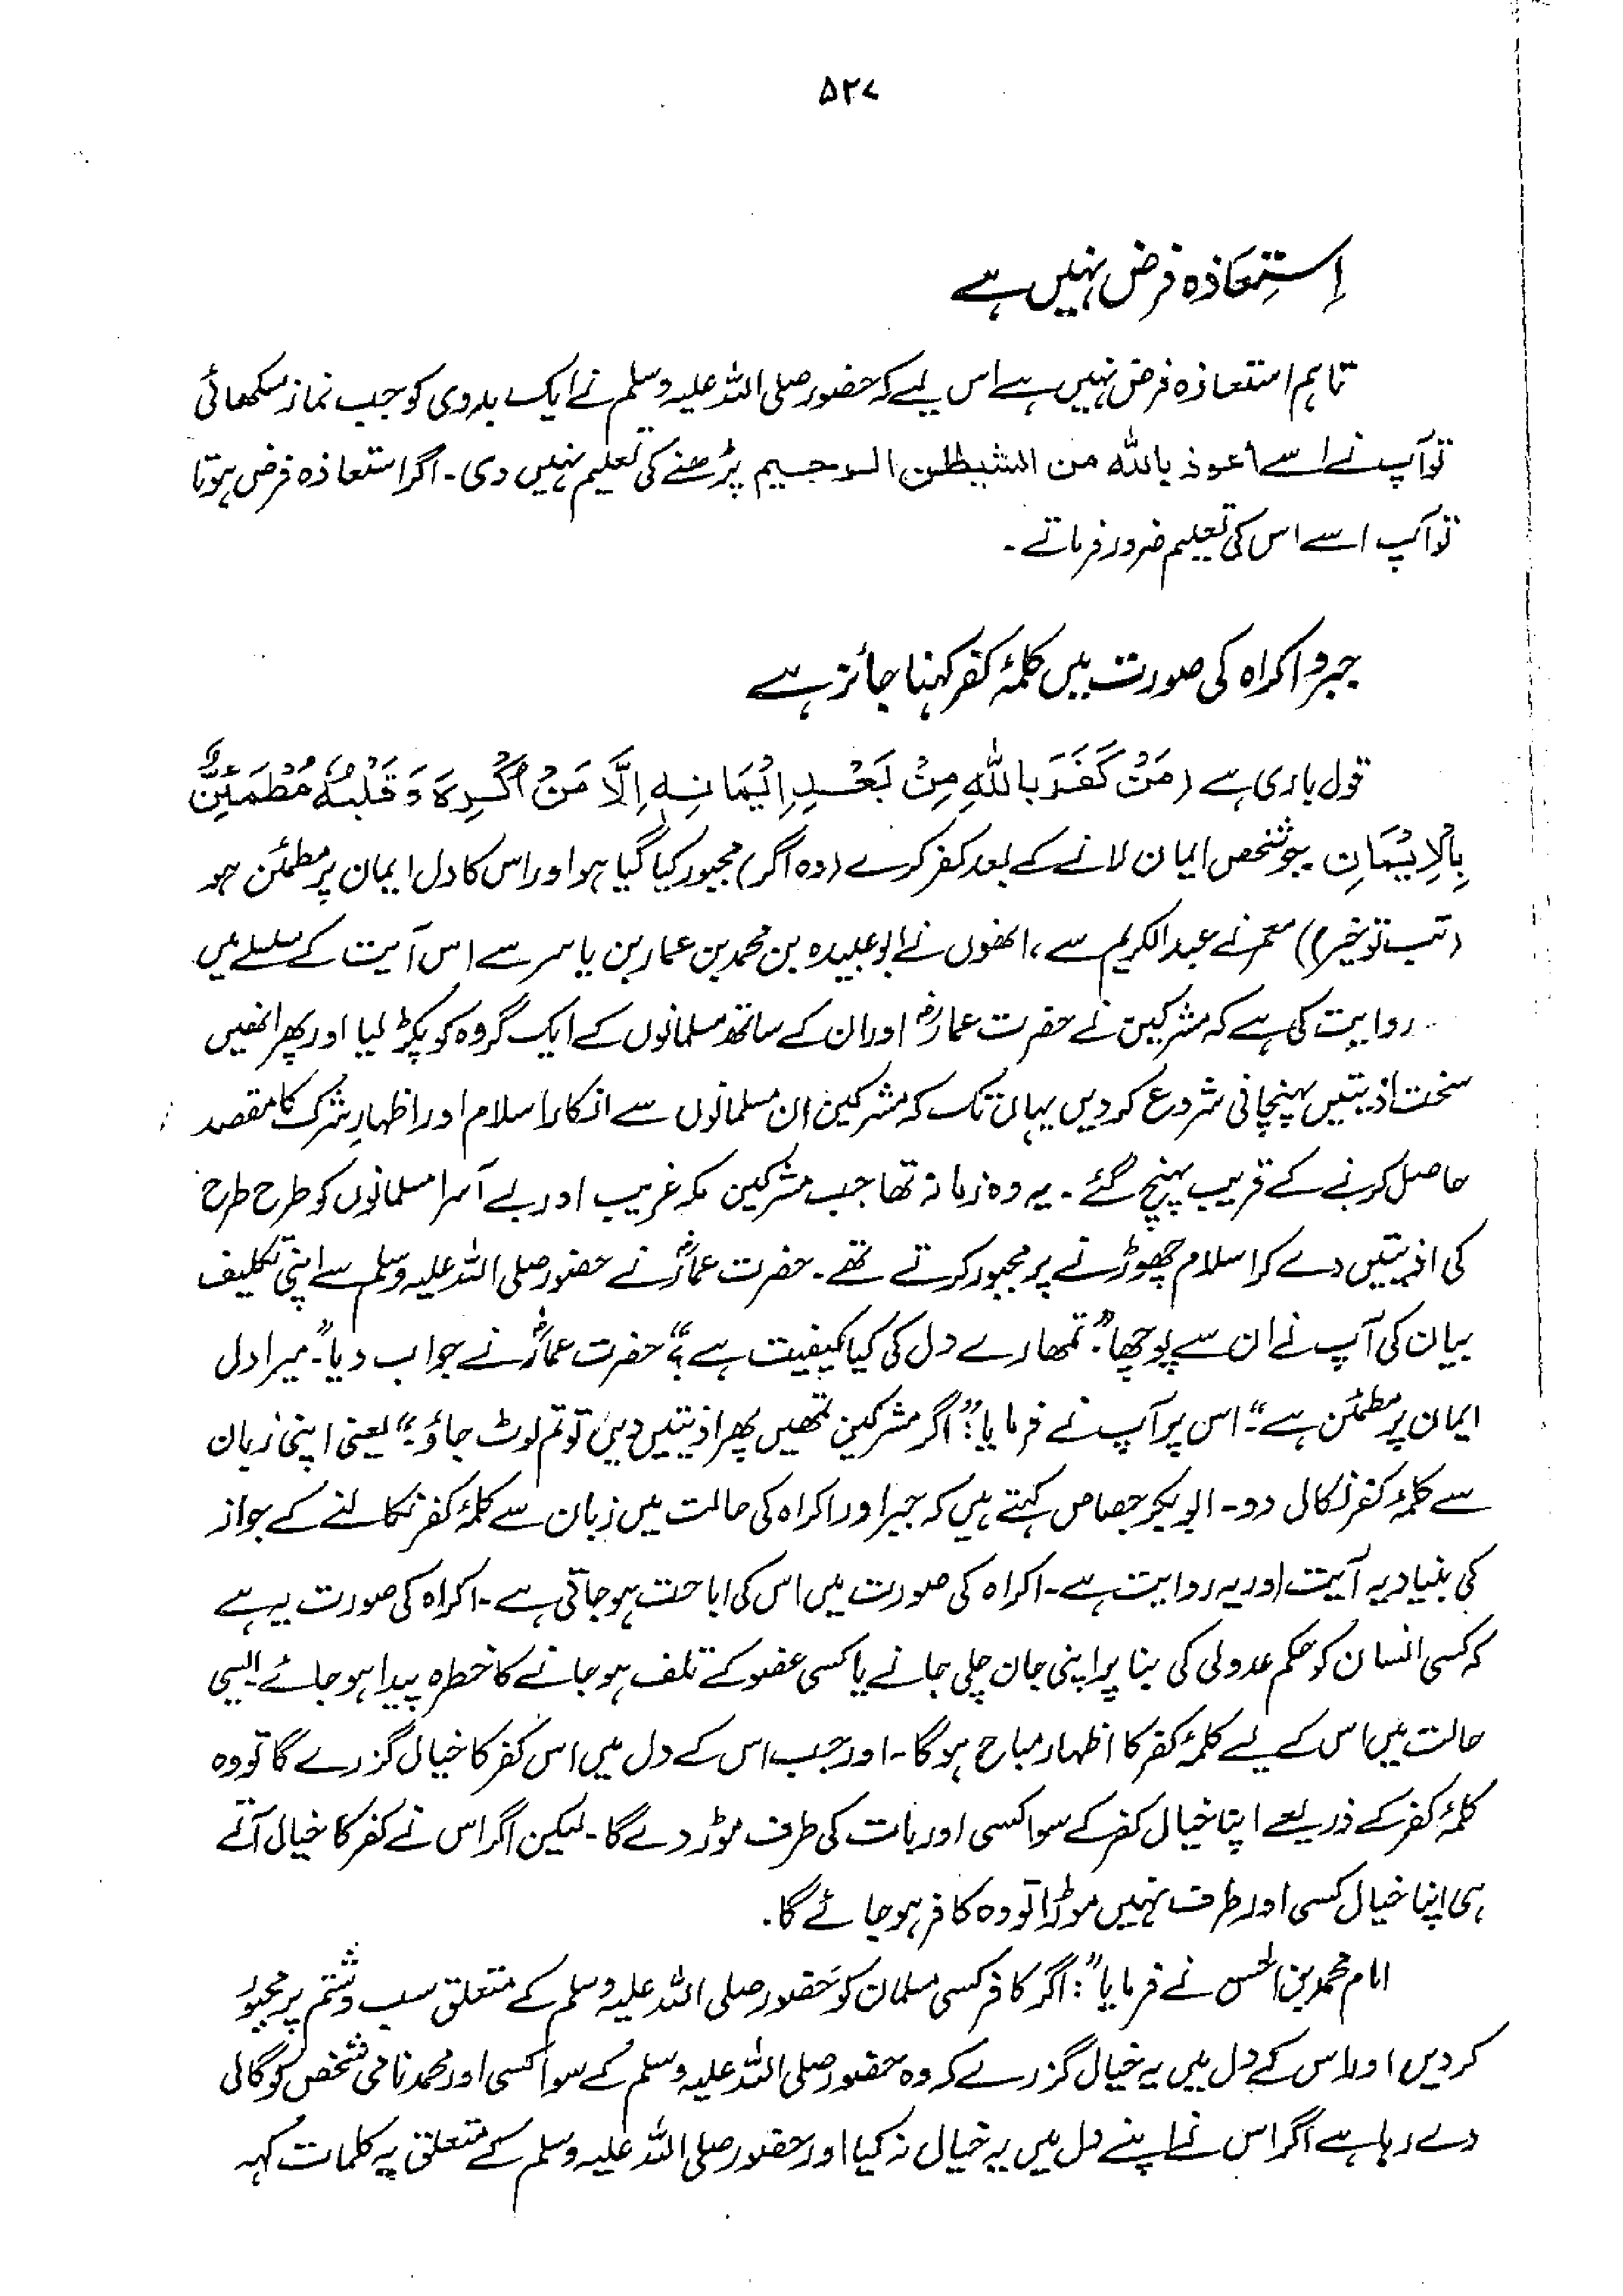 ۵۲۷
اِستِعَاذہ فرض نہیں ہے
تاہم استعاذہ فرض نہیں ہے اس لیے کہ حضور صلی اللہ علیہ وسلم نے ایک بدوی کو جب نماز سکھائی
تو آپ نے اسے اعوذ باللہ من الشیطٰن الرجیم پڑھنے کی تعلیم نہیں دی۔ اگر استعاذہ فرض ہوتا
تو آپ اسے اس کی تعلیم ضرور فرماتے۔
جبر و اکراہ کی صورت میں کلمۂ کفر کہنا جائز ہے
قول باری ہے (مَنْ كَفَرَ بِاللّٰهِ مِنْ بَعْدِ اِيْمَانِهٖ اِلَّا مَنْ اُكْرِهَ وَقَلْبُهٗ مُطْمَئِنٌّ
بِالْاِيْمَانِ جو شخص ایمان لانے کے بعد کفر کرے (وہ اگر) مجبور کیا گیا ہو اور اس کا دل ایمان پر مطمئن ہو
(تب تو خیر)) معمر نے عبدالکریم سے، انھوں نے ابوعبیدہ بن محمد بن عمار بن یاسر سے اس آیت کے سلسلے میں
روایت کی ہے کہ مشرکین نے حضرت عمارؓ اور ان کے ساتھ مسلمانوں کے ایک گروہ کو پکڑ لیا اور پھر انھیں
سخت اذیتیں پہنچانی شروع کر دیں یہاں تک کہ مشرکین ان مسلمانوں سے انکار اسلام اور اظہارِ شرک کا مقصد
حاصل کرنے کے قریب پہنچ گئے۔ یہ وہ زمانہ تھا جب مشرکین مکہ غریب اور بے آسرا مسلمانوں کو طرح طرح
کی اذیتیں دے کر اسلام چھوڑنے پر مجبور کرتے تھے۔ حضرت عمارؓ نے حضور صلی اللہ علیہ وسلم سے اپنی تکلیف
بیان کی آپ نے ان سے پوچھا: "تمھارے دل کی کیا کیفیت ہے؟" حضرت عمارؓ نے جواب دیا۔ "میرا دل
ایمان پر مطمئن ہے"۔ اس پر آپ نے فرمایا: "اگر مشرکین تمھیں پھر اذیتیں دیں تو تم لوٹ جاؤ۔" یعنی اپنی زبان
سے کلمۂ کفر نکال دو۔ ابوبکر جصاص کہتے ہیں کہ جبر اور اکراہ کی حالت میں زبان سے کلمۂ کفر نکالنے کے جواز
کی بنیاد یہ آیت اور یہ روایت ہے۔ اکراہ کی صورت میں اس کی اباحت ہو جاتی ہے۔ اکراہ کی صورت یہ ہے
کہ کسی انسان کو حکم عدولی کی بنا پر اپنی جان چلی جانے یا کسی عضو کے تلف ہو جانے کا خطرہ پیدا ہو جائے۔ ایسی
حالت میں اس کے لیے کلمۂ کفر کا اظہار مباح ہو گا۔ اور جب اس کے دل میں اس کفر کا خیال گزرے گا تو وہ
کلمۂ کفر کے ذریعے اپنا خیال کفر کے سوا کسی اور بات کی طرف موڑ دے گا۔ لیکن اگر اس نے کفر کا خیال آتے
ہی اپنا خیال کسی اور طرف نہیں موڑا تو وہ کافر ہو جائے گا۔
امام محمد بن الحسن نے فرمایا: "اگر کافر کسی مسلمان کو حضور صلی اللہ علیہ وسلم کے متعلق سب و شتم پر مجبور
کر دیں اور اس کے دل میں یہ خیال گزرے کہ وہ حضور صلی اللہ علیہ وسلم کے سوا کسی اور محمد نامی شخص کو گالی
دے رہا ہے اگر اس نے اپنے دل میں یہ خیال نہ کیا اور حضور صلی اللہ علیہ وسلم کے متعلق یہ کلمات کہہ